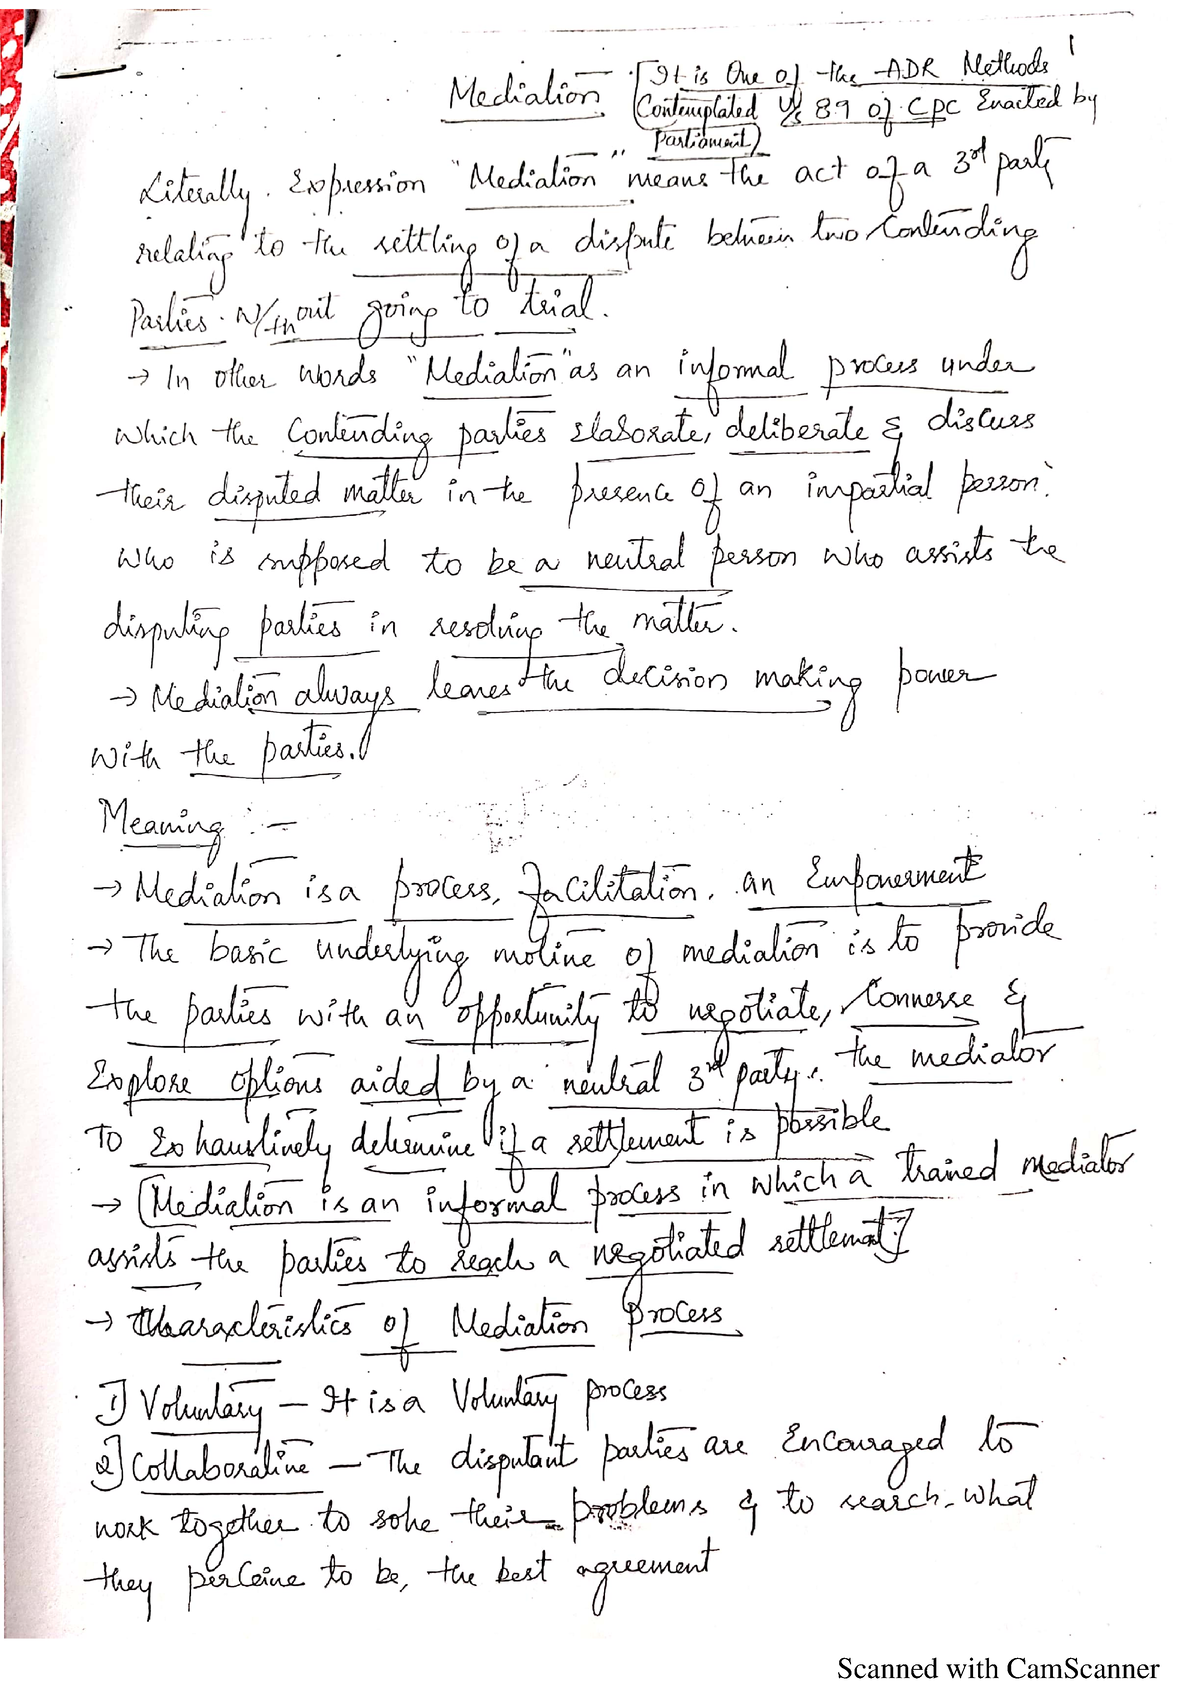 1
Mediation [It is One of the ADR Methods
Contemplated U/s 89 of CPC Enacted by
Parliament)
Literally. Expression "Mediation" means the act of a 3rd party
relating to the settling of a dispute between two Contending
Parties. W/thout going to trial.
→ In other words "Mediation" as an informal process under
which the Contending parties Elaborate, deliberate & discuss
their disputed matter in the presence of an impartial person.
Who is supposed to be a neutral person who assists the
disputing parties in resolving the matter.
→ Mediation always leaves the decision making power
with the parties.
Meaning :-
→ Mediation is a process, facilitation, an Empowerment
→ The basic underlying motive of mediation is to provide
the parties with an opportunity to negotiate, Converse &
Explore options aided by a neutral 3rd party, the mediator
To Exhaustively determine if a settlement is possible
→ [Mediation is an informal process in which a trained mediator
assists the parties to reach a negotiated settlement]
→ Characteristics of Mediation Process
1] Voluntary – It is a Voluntary process
2] Collaborative – The disputant parties are Encouraged to
work together to solve their problems & to search what
they perceive to be, the best agreement
Scanned with CamScanner